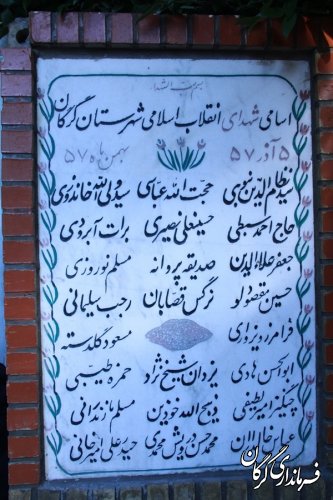 بسم رب الشهدا
اسامی شهدای انقلاب اسلامی شهرستان گرگان
۵ آذر ۵۷ بهمن ماه ۵۷
سید نظام الدین نبوی حجت الله عباسی سید ولی الله خاندوزی
حاج احمد حسینعلی نصیری برات آبرودی
جعفر علاءالدین صدیقه پروانه مسلم نوروزی
حسین مقصودلو نرگس قصابان رجب سلیمانی
فرامرز ویزواری مسعود گلدسته
ابوالحسن هادی یزدان شیخ نژاد حمزه طبیبی
چنگیز امیر لطیفی ذبیح الله خودین مسلم مازندرانی
محمد حسن درویش محمدی حیدر علی امیرخانی
فرمانداری گرگان